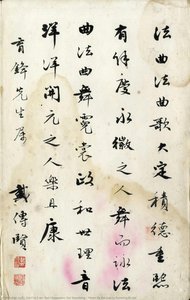 法曲法曲歌大定積德重熙
有餘慶永徽之人舞而詠法
曲法曲舞霓裳政和世理音
洋洋開元之人樂且康
育鋒先生屬
戴傳賢